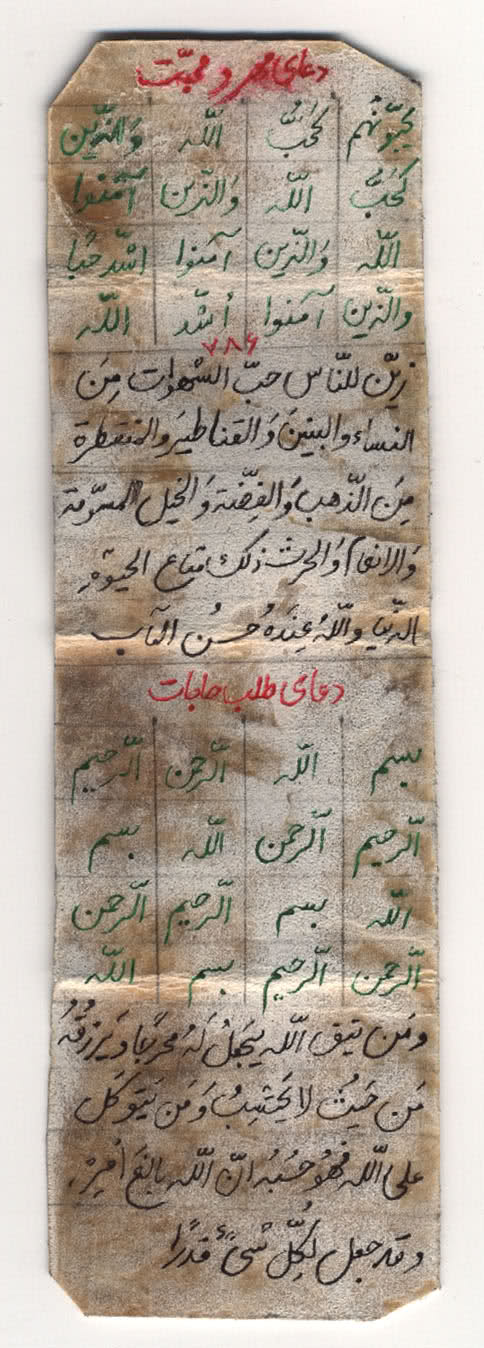 دعای مهر و محبّت
یحبّونهم کَحُبُّ اللّه وَالذّین
کَحُبُّ اللّه وَالذّین آمَنوا
اللّه وَالذّین آمَنوا اشّد حبًا
والذّین آمَنوا أشّد اللّه
۷۸۶
زیّن للنّاس حبّ الشهوات مِنَ
النساء والبنینَ وَالقناطیَر والمنقطرة
مِنَ الذّهب وَالفِضّة وَالخیل المسوّمة
وَالانعام وَالحرث ذلک متاع الحیوةِ
الدّنیا واللّهُ عِندَهُ حُسنُ المآب
دعای طلب حاجات
بسم اللّه الرّحمن الرّحیم
الرّحیم الرّحمن اللّه بسم
اللّه بسم الرّحیم الرّحمن
الرّحمن الرّحیم بسم اللّه
ومَن یتق اللّه یَجعلُ لَهُ مخرجًا وَیَرزقُهُ
مَن حَیثُ لا یَحتسِبُ وَمَن یَتوکل
علی اللّه فهُو حَسُبُه انّ اللّه بالغَ أمِرِه
وقد جعل لِکُلِّ شیءٍ قدرًا